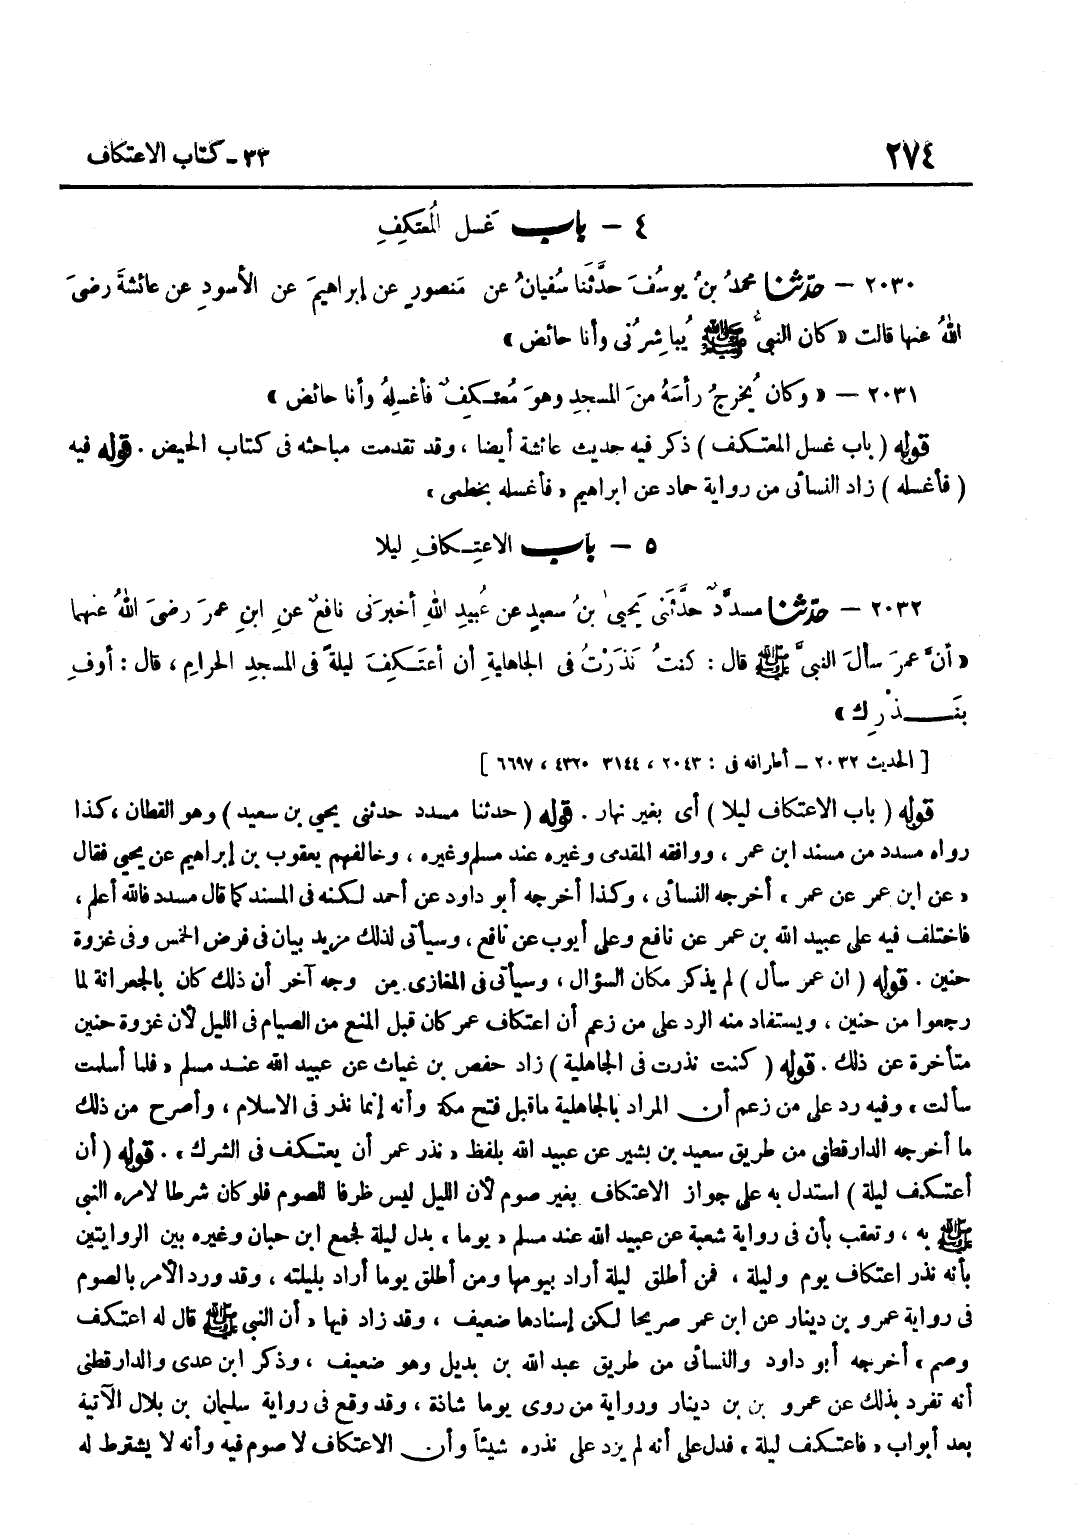 ٢٧٤
٣٣ - كتاب الاعتكاف
٤ - باب غَسل المُعتكِفِ
٢٠٣٠ - حدّثنا محمدُ بنُ يوسُفَ حدَّثَنا سُفيانُ عن مَنصورٍ عن إبراهيمَ عن الأسودِ عن عائشةَ رضىَ
اللهُ عنها قالت «كان النبىُّ ﷺ يُباشِرُنى وأنا حائض»
٢٠٣١ - «وكان يُخرجُ رأسَهُ منَ المسجدِ وهوَ مُعتكِفٌ فأغسلهُ وأنا حائض»
قوله ( باب غسل المعتكف ) ذكر فيه حديث عائشة أيضا ، وقد تقدمت مباحثه فى كتاب الحيض . قوله فيه
( فأغسله ) زاد النسائى من رواية حماد عن ابراهيم « فأغسله بخطمى »
٥ - باب الاعتِكافِ ليلا
٢٠٣٢ - حدّثنا مسدَّدٌ حدَّثَنى يَحيىٰ بنُ سعيدٍ عن عُبيدِ اللهِ أخبرَنى نافعٌ عنِ ابنِ عمرَ رضىَ اللهُ عنهما
« أنَّ عمرَ سألَ النبىَّ ﷺ قال : كنتُ نَذَرْتُ فى الجاهليةِ أن أعتَكِفَ ليلةً فى المسجدِ الحرامِ ، قال : أوفِ
بنَذْرِك »
[ الحديث ٢٠٣٢ - أطرافه فى : ٢٠٤٣ ، ٣١٤٤ ، ٤٣٢٠ ، ٦٦٩٧ ]
قوله ( باب الاعتكاف ليلا ) أى بغير نهار . قوله ( حدثنا مسدد حدثنى يحيى بن سعيد ) وهو القطان ، كذا
رواه مسدد من مسند ابن عمر ، ووافقه المقدمى وغيره عند مسلم وغيره ، وخالفهم يعقوب بن إبراهيم عن يحيى فقال
« عن ابن عمر عن عمر » أخرجه النسائى ، وكذا أخرجه أبو داود عن أحمد لكنه فى المسند كما قال مسدد فالله أعلم ،
فاختلف فيه على عبيد الله بن عمر عن نافع وعلى أيوب عن نافع ، وسيأتى لذلك مزيد بيان فى فرض الخمس وفى غزوة
حنين . قوله ( ان عمر سأل ) لم يذكر مكان السؤال ، وسيأتى فى المغازى من وجه آخر أن ذلك كان بالجعرانة لما
رجعوا من حنين ، ويستفاد منه الرد على من زعم أن اعتكاف عمر كان قبل المنع من الصيام فى الليل لأن غزوة حنين
متأخرة عن ذلك . قوله ( كنت نذرت فى الجاهلية ) زاد حفص بن غياث عن عبيد الله عند مسلم « فلما أسلمت
سألت » وفيه رد على من زعم أن المراد بالجاهلية ماقبل فتح مكة وأنه إنما نذر فى الاسلام ، وأصرح من ذلك
ما أخرجه الدارقطنى من طريق سعيد بن بشير عن عبيد الله بلفظ « نذر عمر أن يعتكف فى الشرك » . قوله ( أن
أعتكف ليلة ) استدل به على جواز الاعتكاف بغير صوم لأن الليل ليس ظرفا للصوم فلو كان شرطا لامره النبى
ﷺ به ، وتعقب بأن فى رواية شعبة عن عبيد الله عند مسلم « يوما » بدل ليلة فجمع ابن حبان وغيره بين الروايتين
بأنه نذر اعتكاف يوم وليلة ، فمن أطلق ليلة أراد بيومها ومن أطلق يوما أراد بليلته ، وقد ورد الأمر بالصوم
فى رواية عمرو بن دينار عن ابن عمر صريحا لكن إسنادها ضعيف ، وقد زاد فيها « أن النبى ﷺ قال له اعتكف
وصم » أخرجه أبو داود والنسائى من طريق عبد الله بن بديل وهو ضعيف ، وذكر ابن عدى والدارقطنى
أنه تفرد بذلك عن عمرو بن بن دينار ورواية من روى يوما شاذة ، وقد وقع فى رواية سليمان بن بلال الآتية
بعد أبواب « فاعتكف ليلة » فدل على أنه لم يزد على نذره شيئاً وأن الاعتكاف لا صوم فيه وأنه لا يشترط له